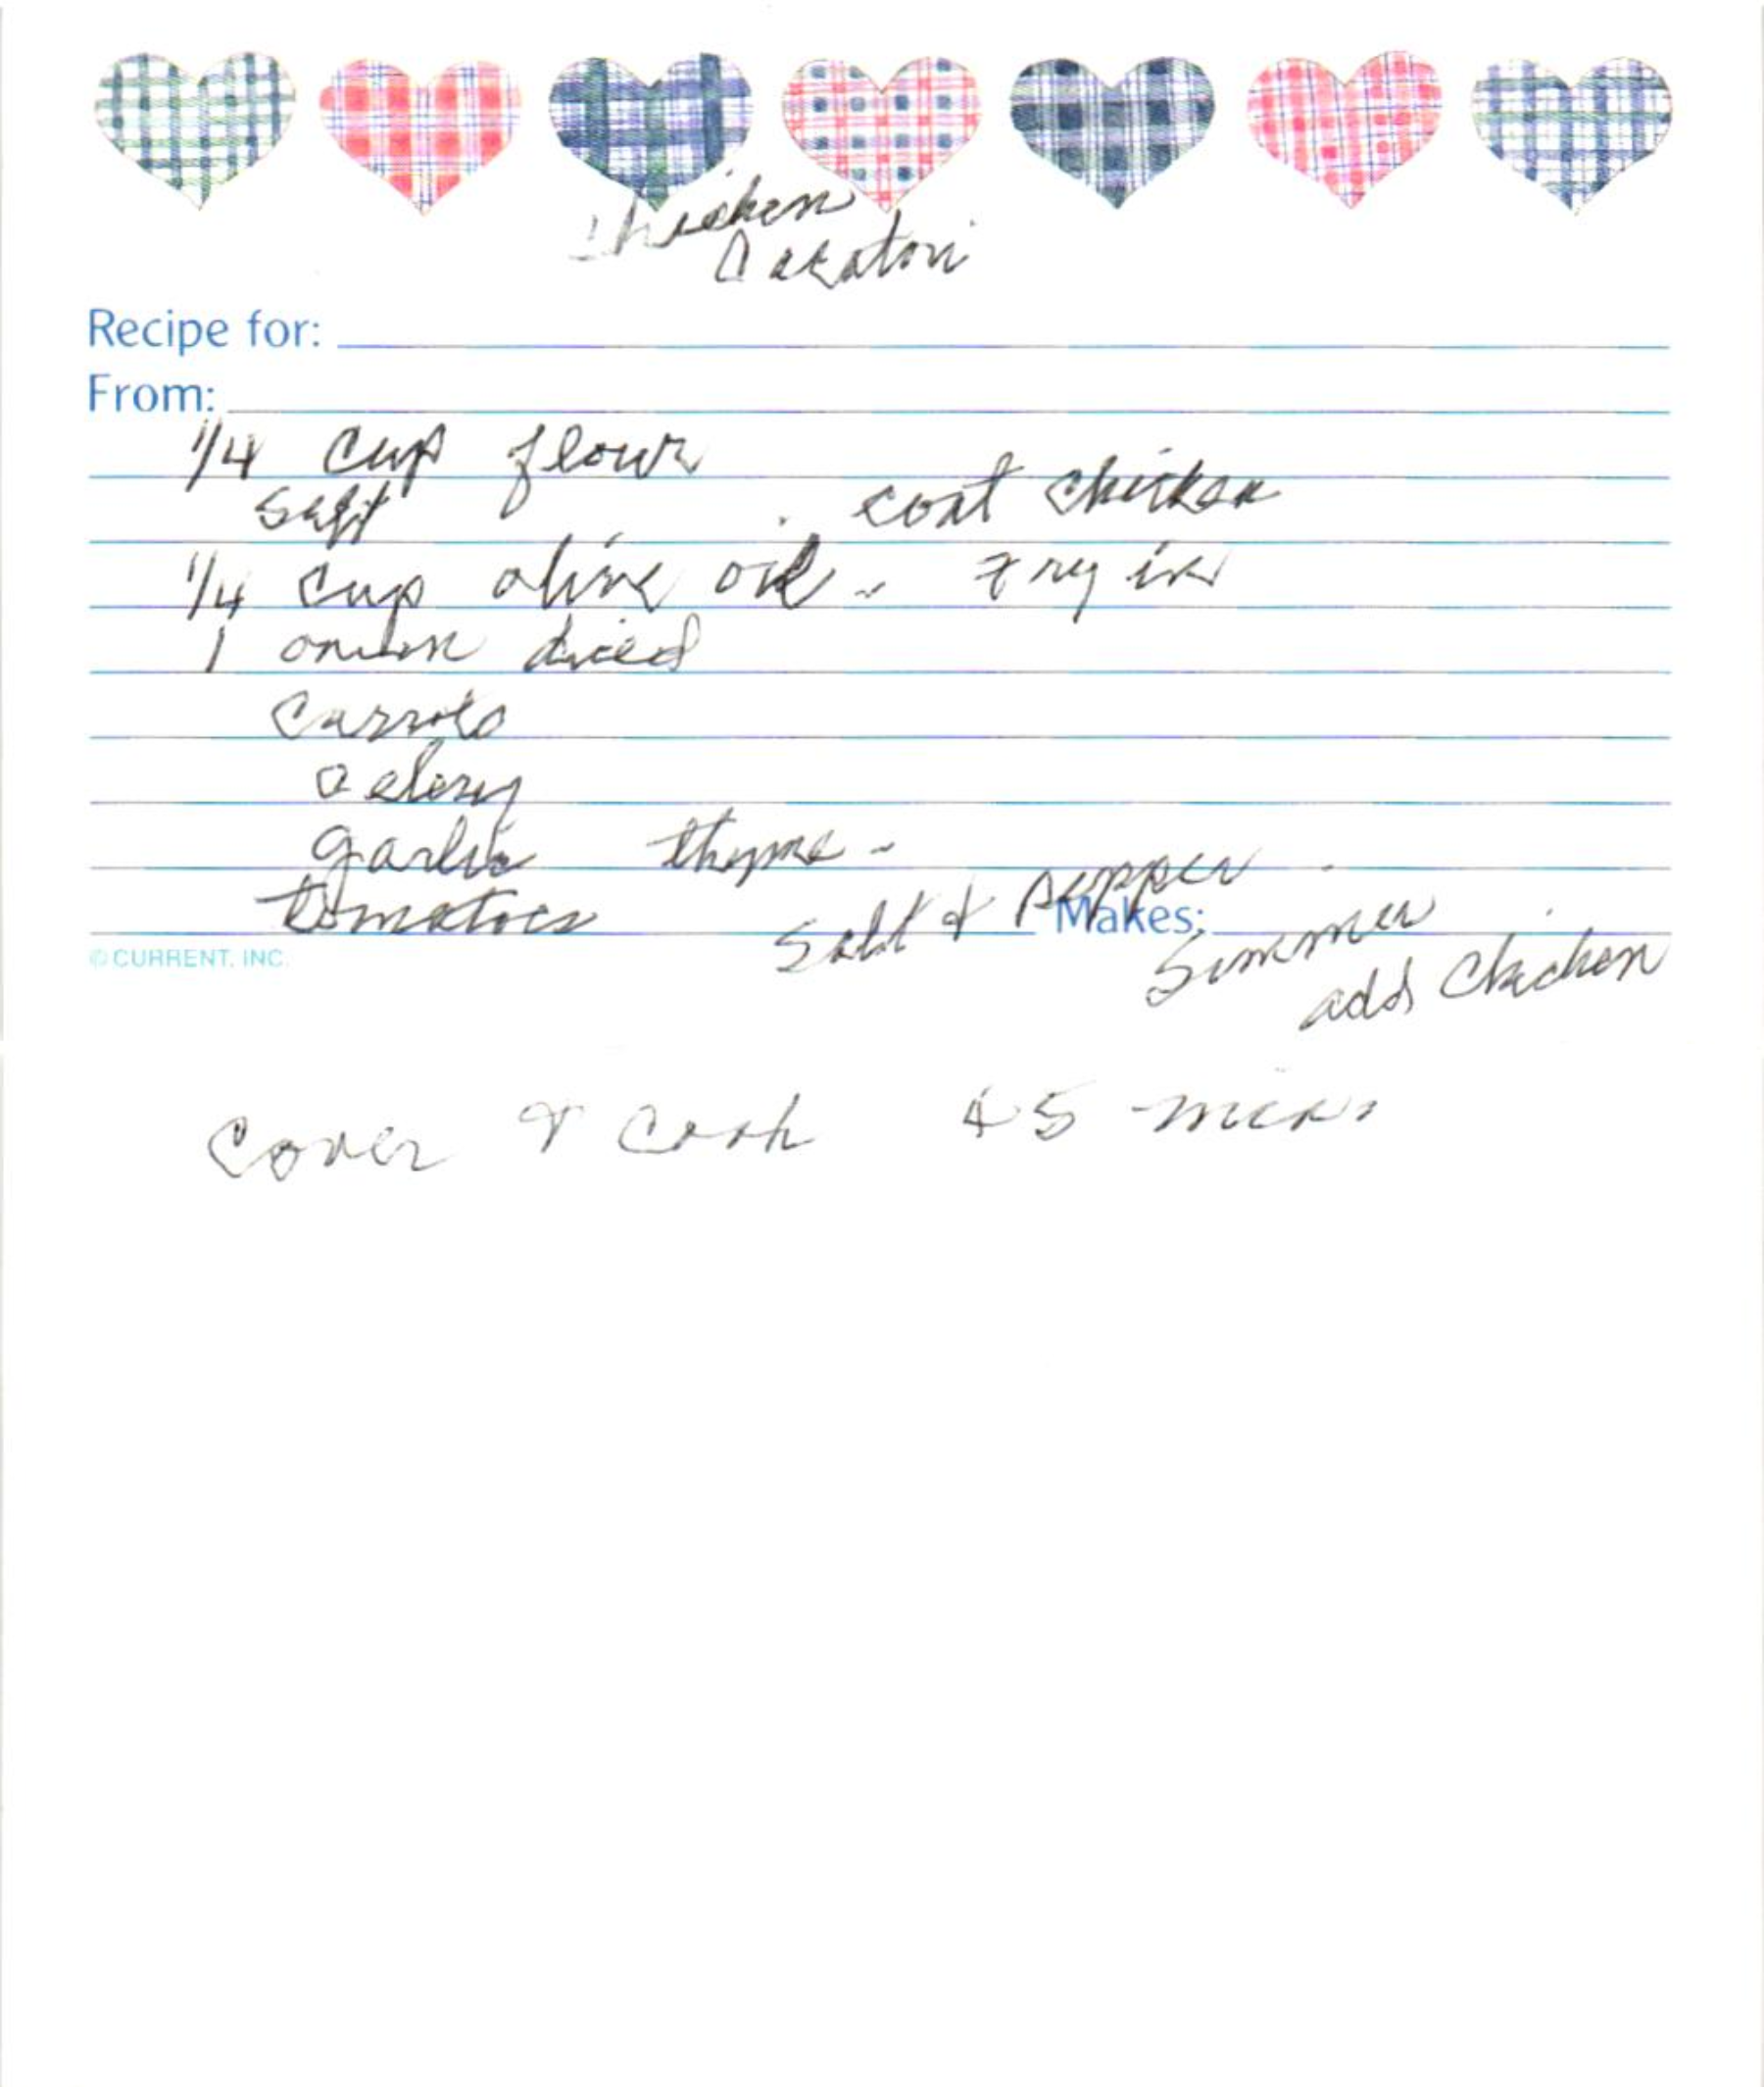 Chicken
Cacatori
Recipe for:
From:
1/4 cup flour
salt . coat chicken
1/4 cup olive oil - Fry in
1 onion diced
carrots
celery
garlic thyme -
tomatoes salt & pepper
Makes:
simmer
© CURRENT, INC.
add chicken
Cover & Cook 45 min.